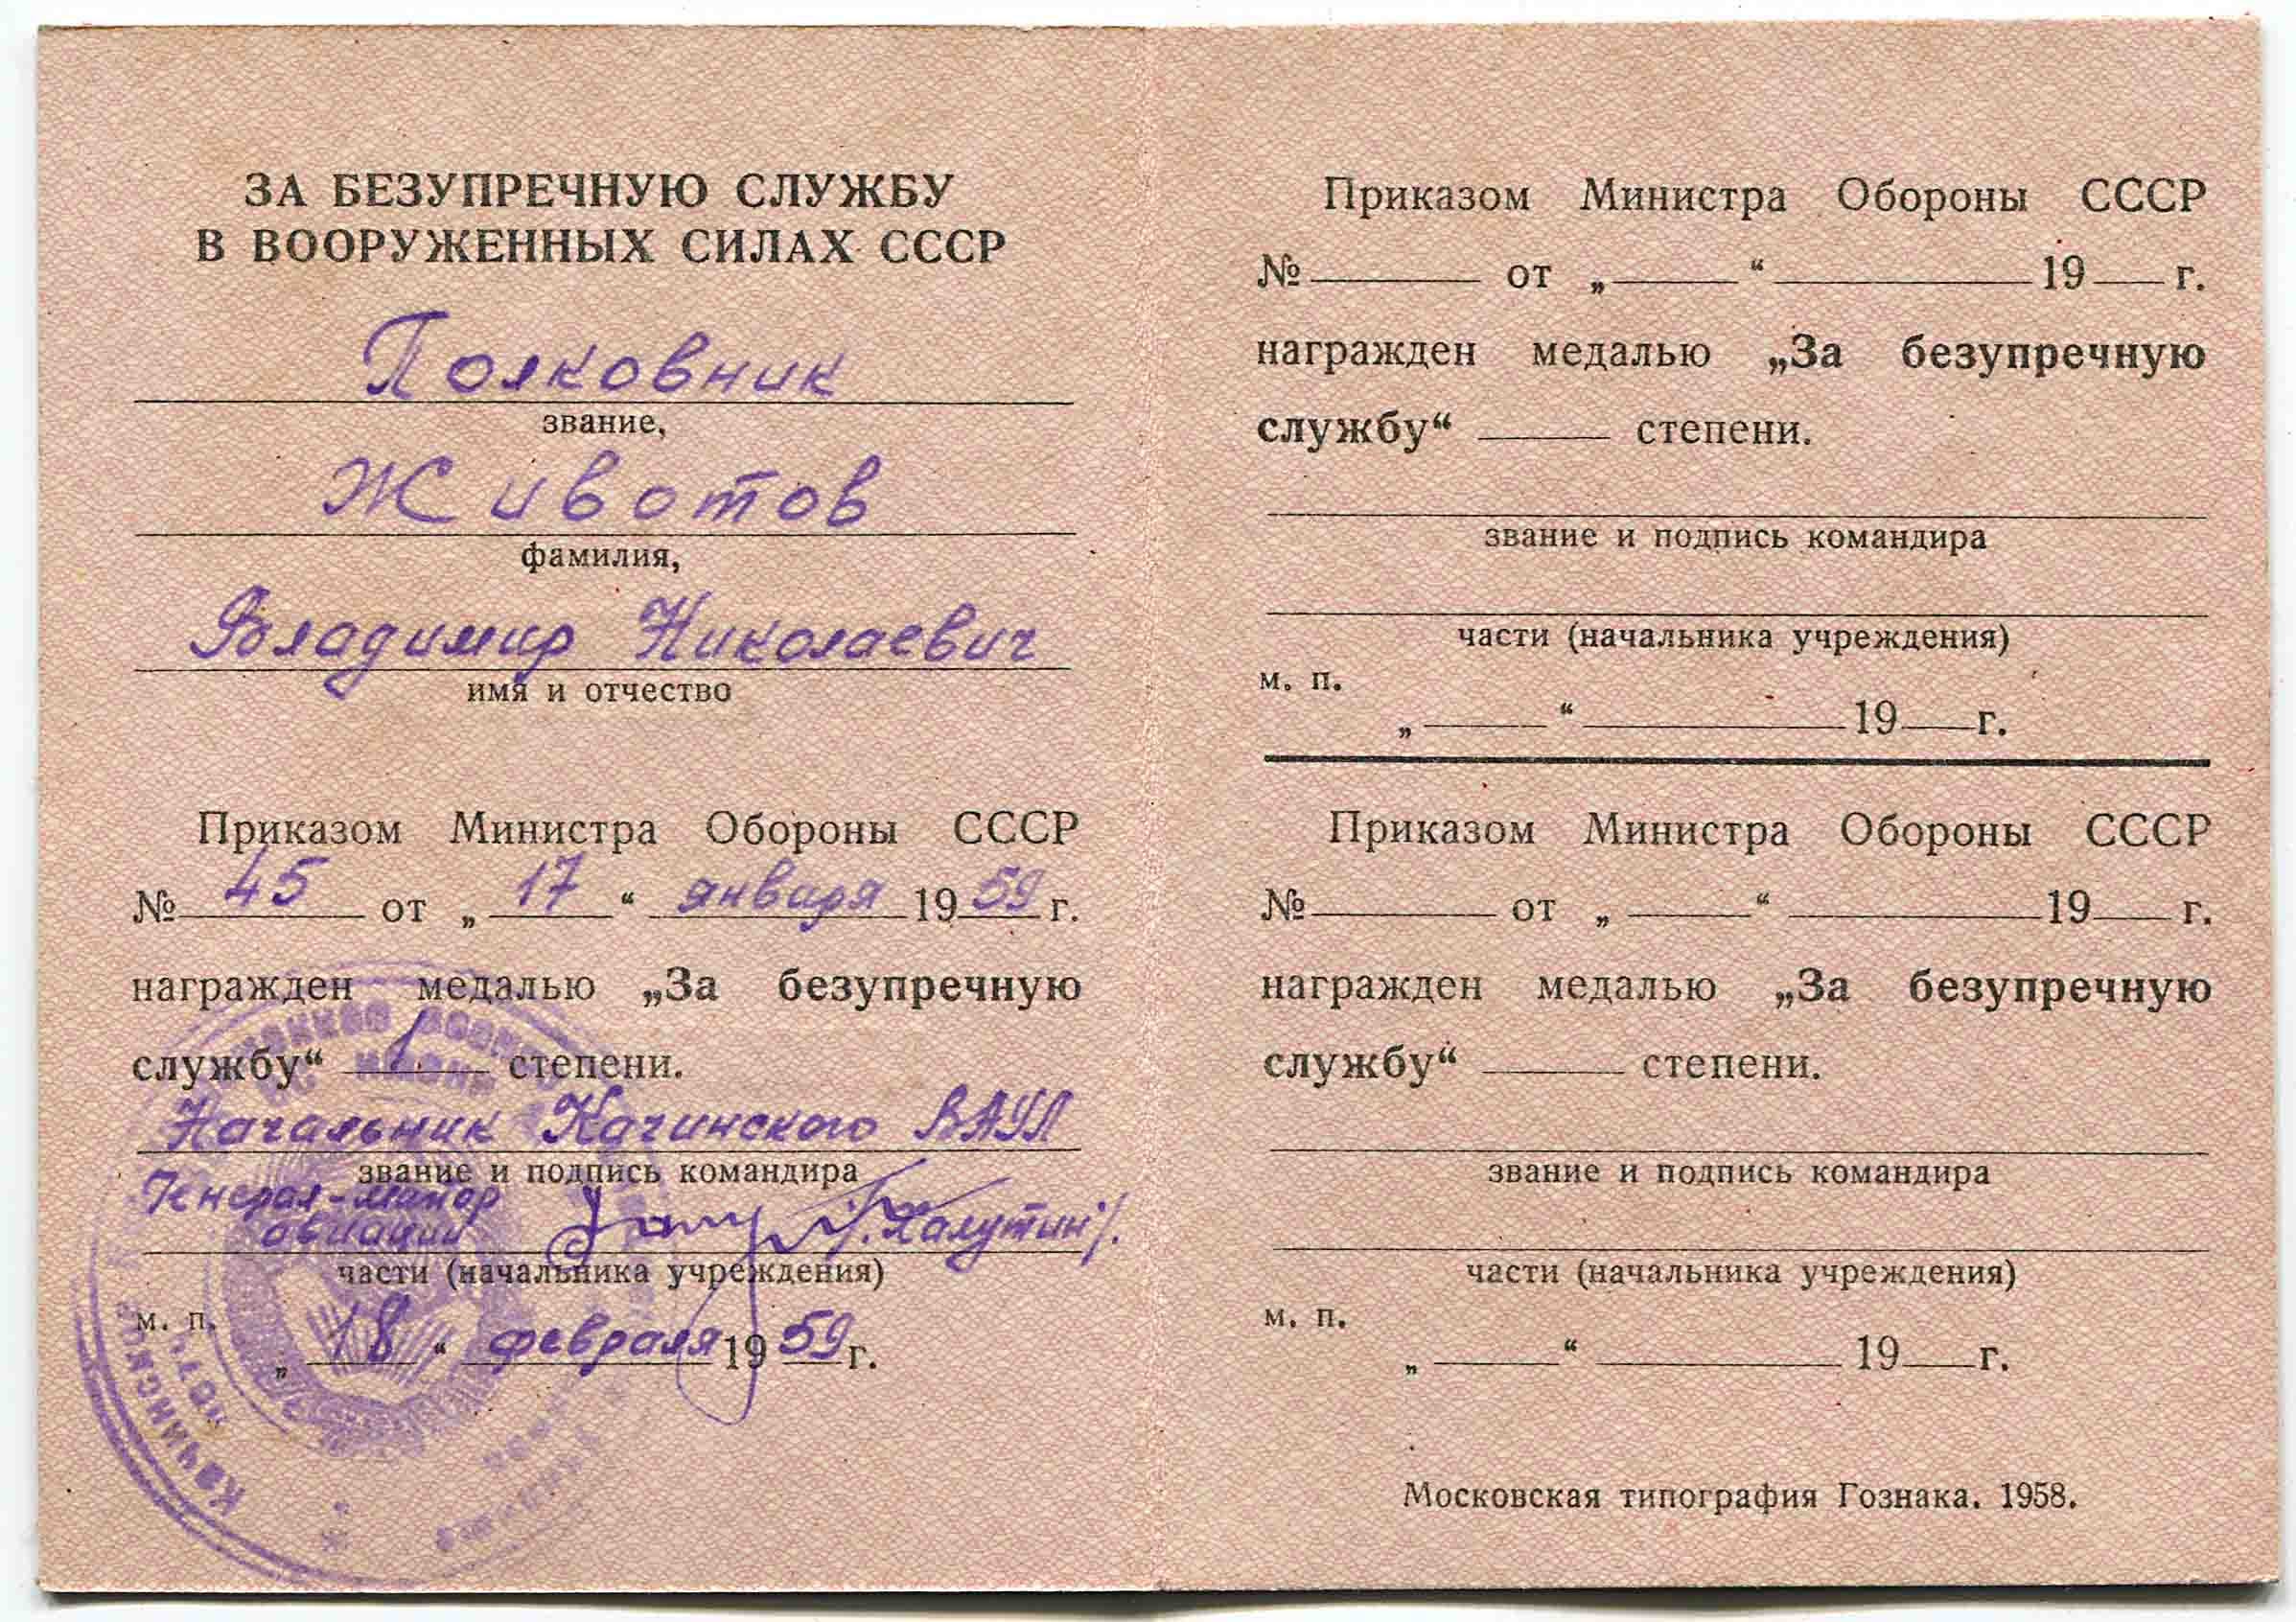 ЗА БЕЗУПРЕЧНУЮ СЛУЖБУ
В ВООРУЖЕННЫХ СИЛАХ СССР
Полковник
звание,
Животов
фамилия,
Владимир Николаевич
имя и отчество
Приказом Министра Обороны СССР
№ 45 от „17“ января 1959 г.
награжден медалью „За безупречную
службу“ 1 степени.
Начальник Качинского ВАУЛ
звание и подпись командира
Генерал-майор
авиации /Халутин/.
части (начальника учреждения)
м. п.
„18“ февраля 1959 г.
Приказом Министра Обороны СССР
№ от „ “ 19 г.
награжден медалью „За безупречную
службу“ степени.
звание и подпись командира
части (начальника учреждения)
м. п.
„ “ 19 г.
Приказом Министра Обороны СССР
№ от „ “ 19 г.
награжден медалью „За безупречную
службу“ степени.
звание и подпись командира
части (начальника учреждения)
м. п.
„ “ 19 г.
Московская типография Гознака. 1958.